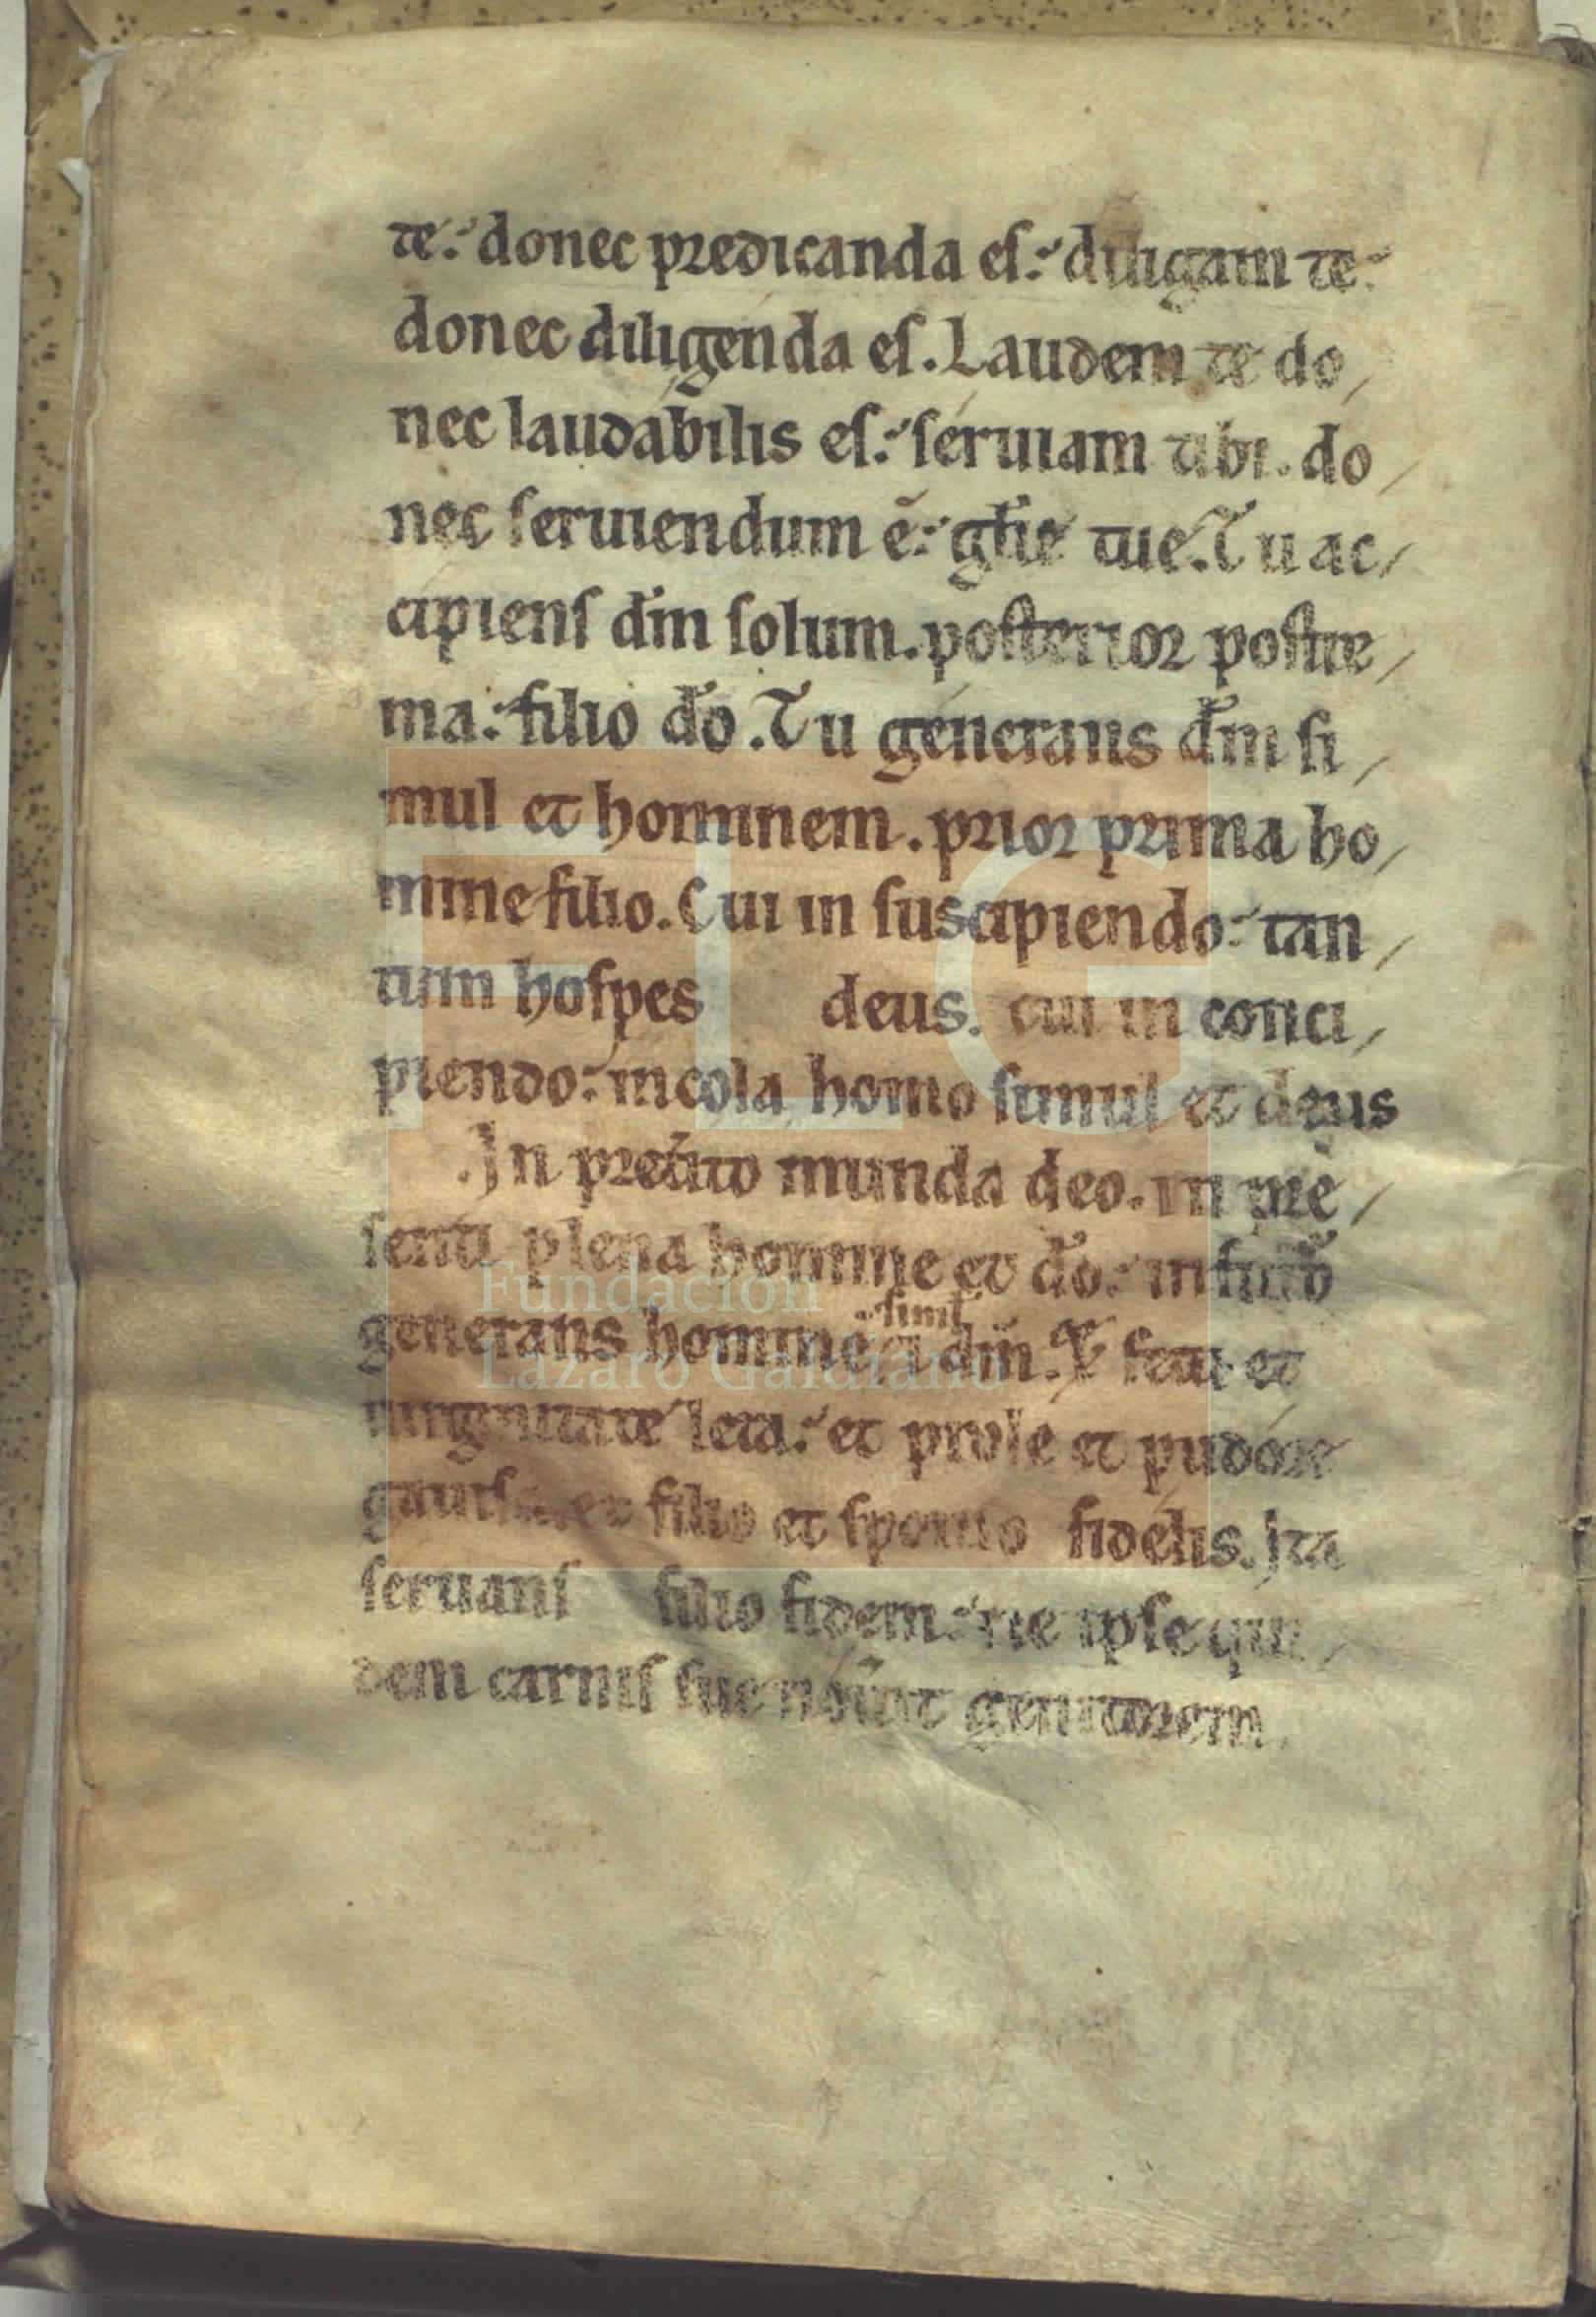 te: donec predicanda es: diligam te:
donec diligenda es. Laudem te do/
nec laudabilis es: seruiam tibi. do/
nec seruiendum ē: gł̄ie tue. Tu ac/
cipiens dm̄ solum. posterior postre/
ma: filio dō. Tu generans dm̄ si/
mul et hominem. prior prima ho/
mine filio. Cui in suscipiendo: tan/
tum hospes deus. cui in conci/
piendo: incola homo simul et deus
.In pret̾ito munda deo. in pre/
senti plena homine et dō: in futuro
generans hominē simł dm̄. fetu et
uirginitate leta: et prole et pudore
filio et sponso fidelis. Ita
seruans filio fidem: ne ipse qui/
dem carnis sue genitorem.
Fundación
Lázaro Galdiano
FLG